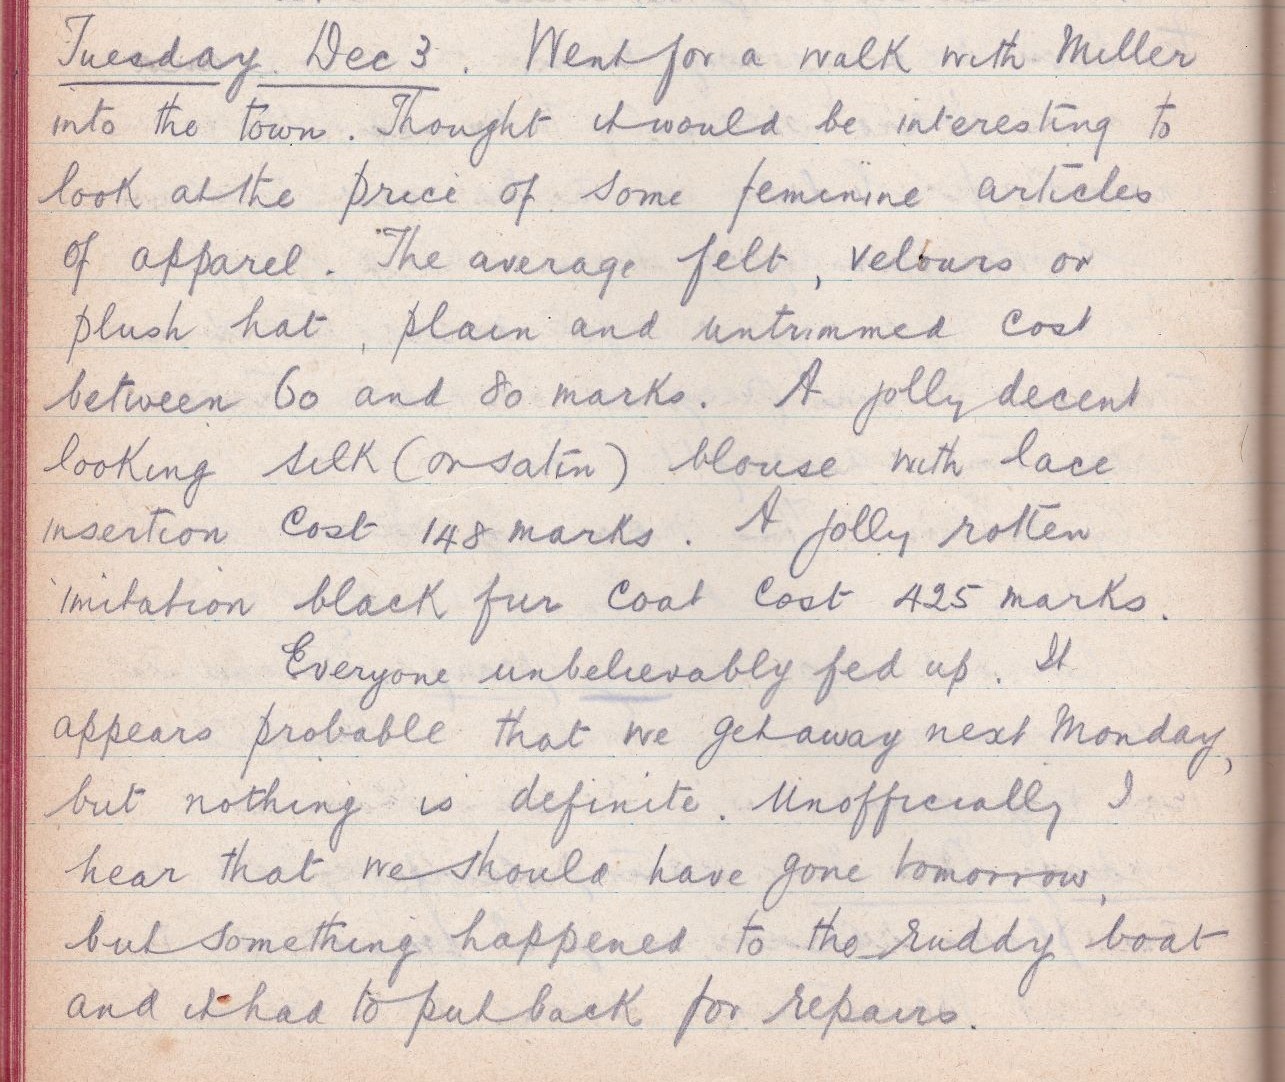 Tuesday Dec 3. Went for a walk with Miller
into the town. Thought it would be interesting to
look at the price of some feminine articles
of apparel. The average felt, velours or
plush hat, plain and untrimmed cost
between 60 and 80 marks. A jolly decent
looking silk (or satin) blouse with lace
insertion cost 148 marks. A jolly rotten
imitation black fur coat cost 425 marks.
Everyone unbelievably fed up. It
appears probable that we get away next Monday,
but nothing is definite. Unofficially I
hear that we should have gone tomorrow,
but something happened to the ruddy boat
and it had to put back for repairs.